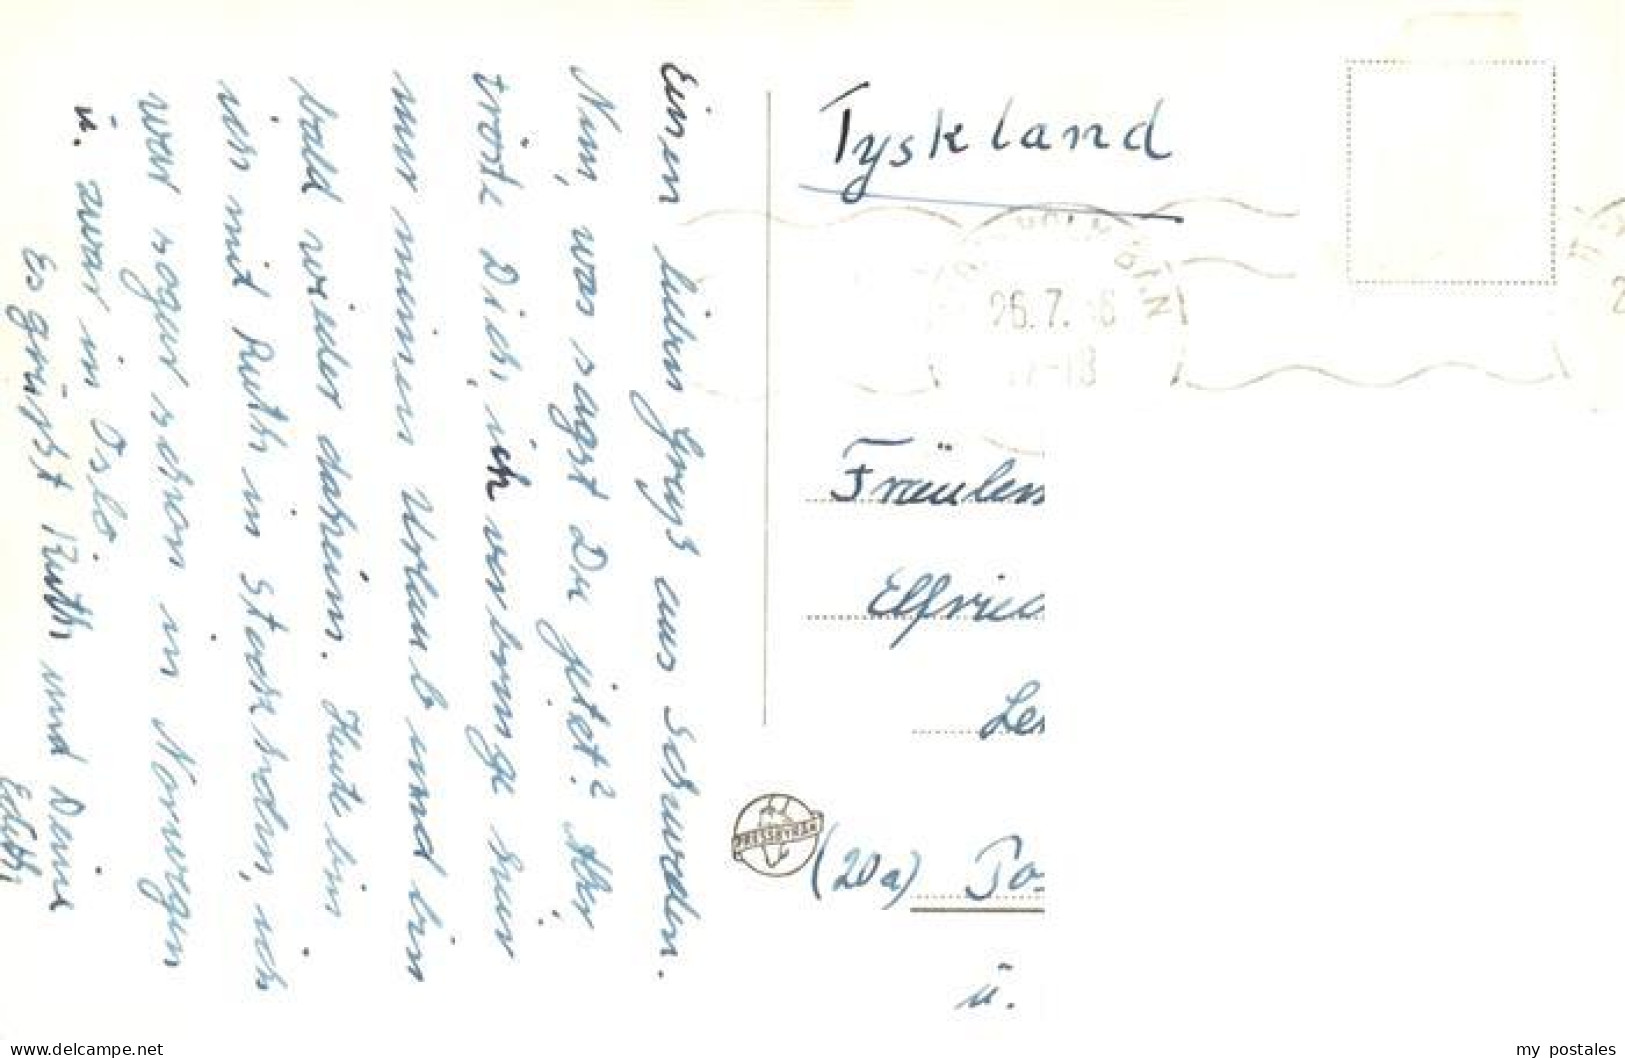 Einen lieben Gruß aus Schweden.
Nun, was sagst Du jetzt? Aber
tröste Dich, ich verbringe hier
nur meinen Urlaub und bin
bald wieder daheim. Heute bin
ich mit Ruth in Stockholm, ich
war sogar schon in Norwegen
u. zwar in Oslo.
Es grüßt Ruth und Deine
Edith
Tyskland
26.7.
17-18
Fräulein
Elfried
Le
PRESSBYRÅN
(20a)
ü.
www.delcampe.net
my_postales